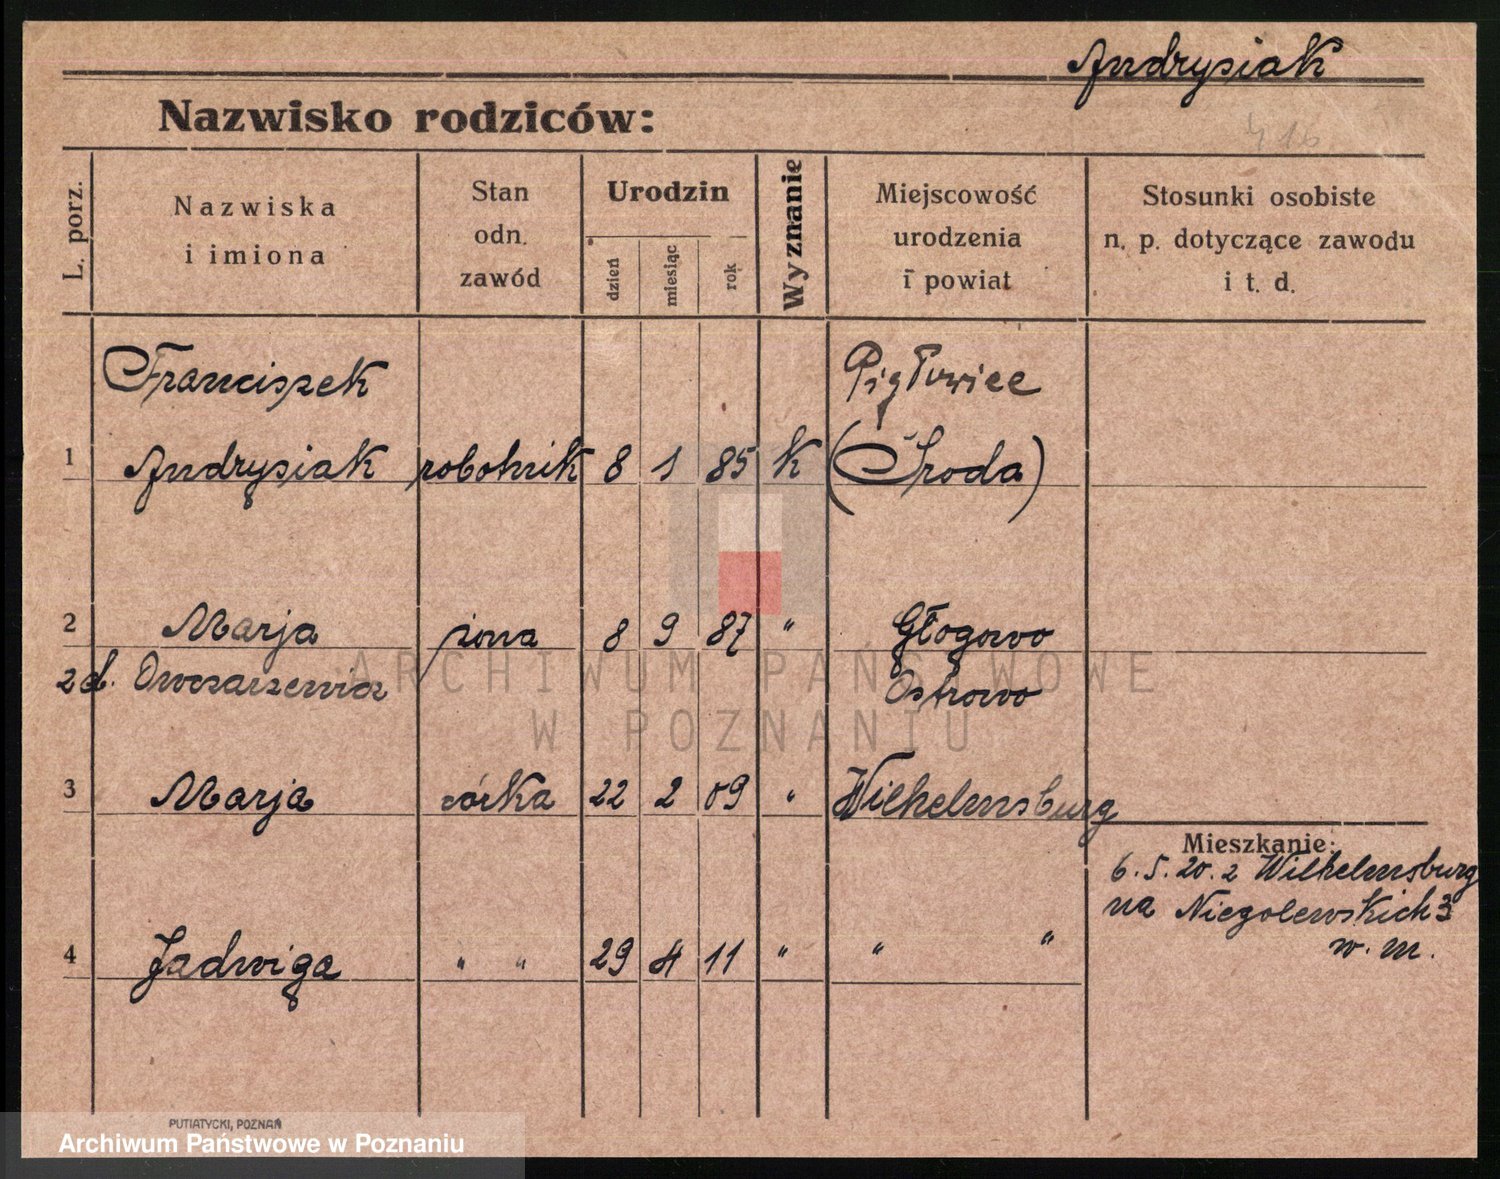 Andrysiak
Nazwisko rodziców:
L. porz.
Nazwiska
i imiona
Stan
odn.
zawód
Urodzin
dzień
miesiąc
rok
Wyznanie
Miejscowość
urodzenia
i powiat
Stosunki osobiste
n. p. dotyczące zawodu
i t. d.
Franciszek Pigłowice
1 Andrysiak robotnik 8 1 85 K (Środa)
2 Marja żona 8 9 87 " Głogowo
z d. Owczarzewicz Ostrowo
3 Marja córka 22 2 09 " Wilhelmsburg
Mieszkanie:
6. 5. 20. z Wilhelmsburg
na Niegolewskich 3
w. m.
4 Jadwiga " " 29 4 11 " " "
ARCHIWUM PAŃSTWOWE
W POZNANIU
PUTIATYCKI, POZNAŃ
Archiwum Państwowe w Poznaniu